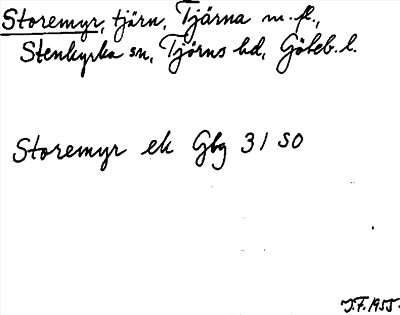 Storemyr, tjärn, Tjärna m. fl.,
Stenkyrka sn, Tjörns hd, Göteb. l.
Storemyr ek Gbg 31 SO
J.F. 1955.